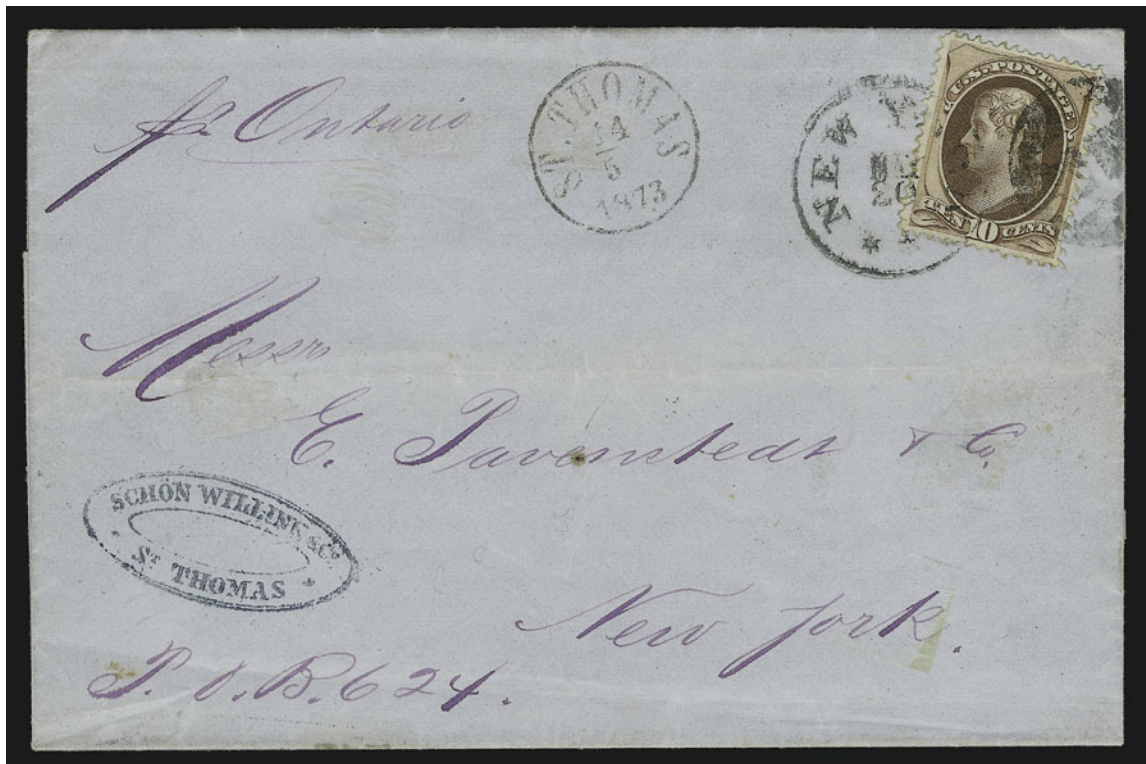 pr Ontario
ST. THOMAS
14
5
1873
NEW
20
U.S. POSTAGE
TEN 10 CENTS
Messrs
E. Pavenstedt & Co.
SCHÖN WILLINK & Co.
St THOMAS
New York.
P.O.B. 624.